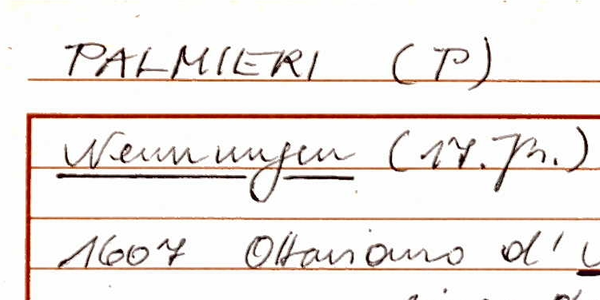 PALMIERI (P)
Nennungen (17. Jh.)
1607 Ottaviano d'